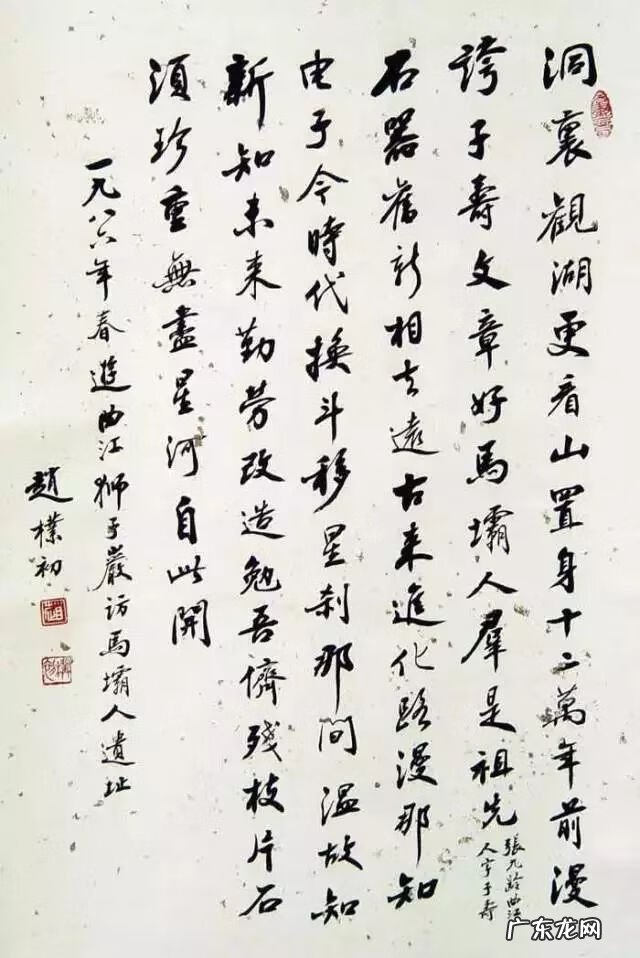 洞裏觀湖更看山置身十二萬年前漫
誇子壽文章好馬壩人羣是祖先
張九齡曲江
人字子壽
石器舊新相去遠古來進化路漫那知
电子今時代換斗移星刹那間温故知
新知未来勤勞改造勉吾儕殘枝片石
須珍重無盡星河自此開
一九八六年春遊曲江狮子巖访馬壩人遺址
趙樸初
广东龙网